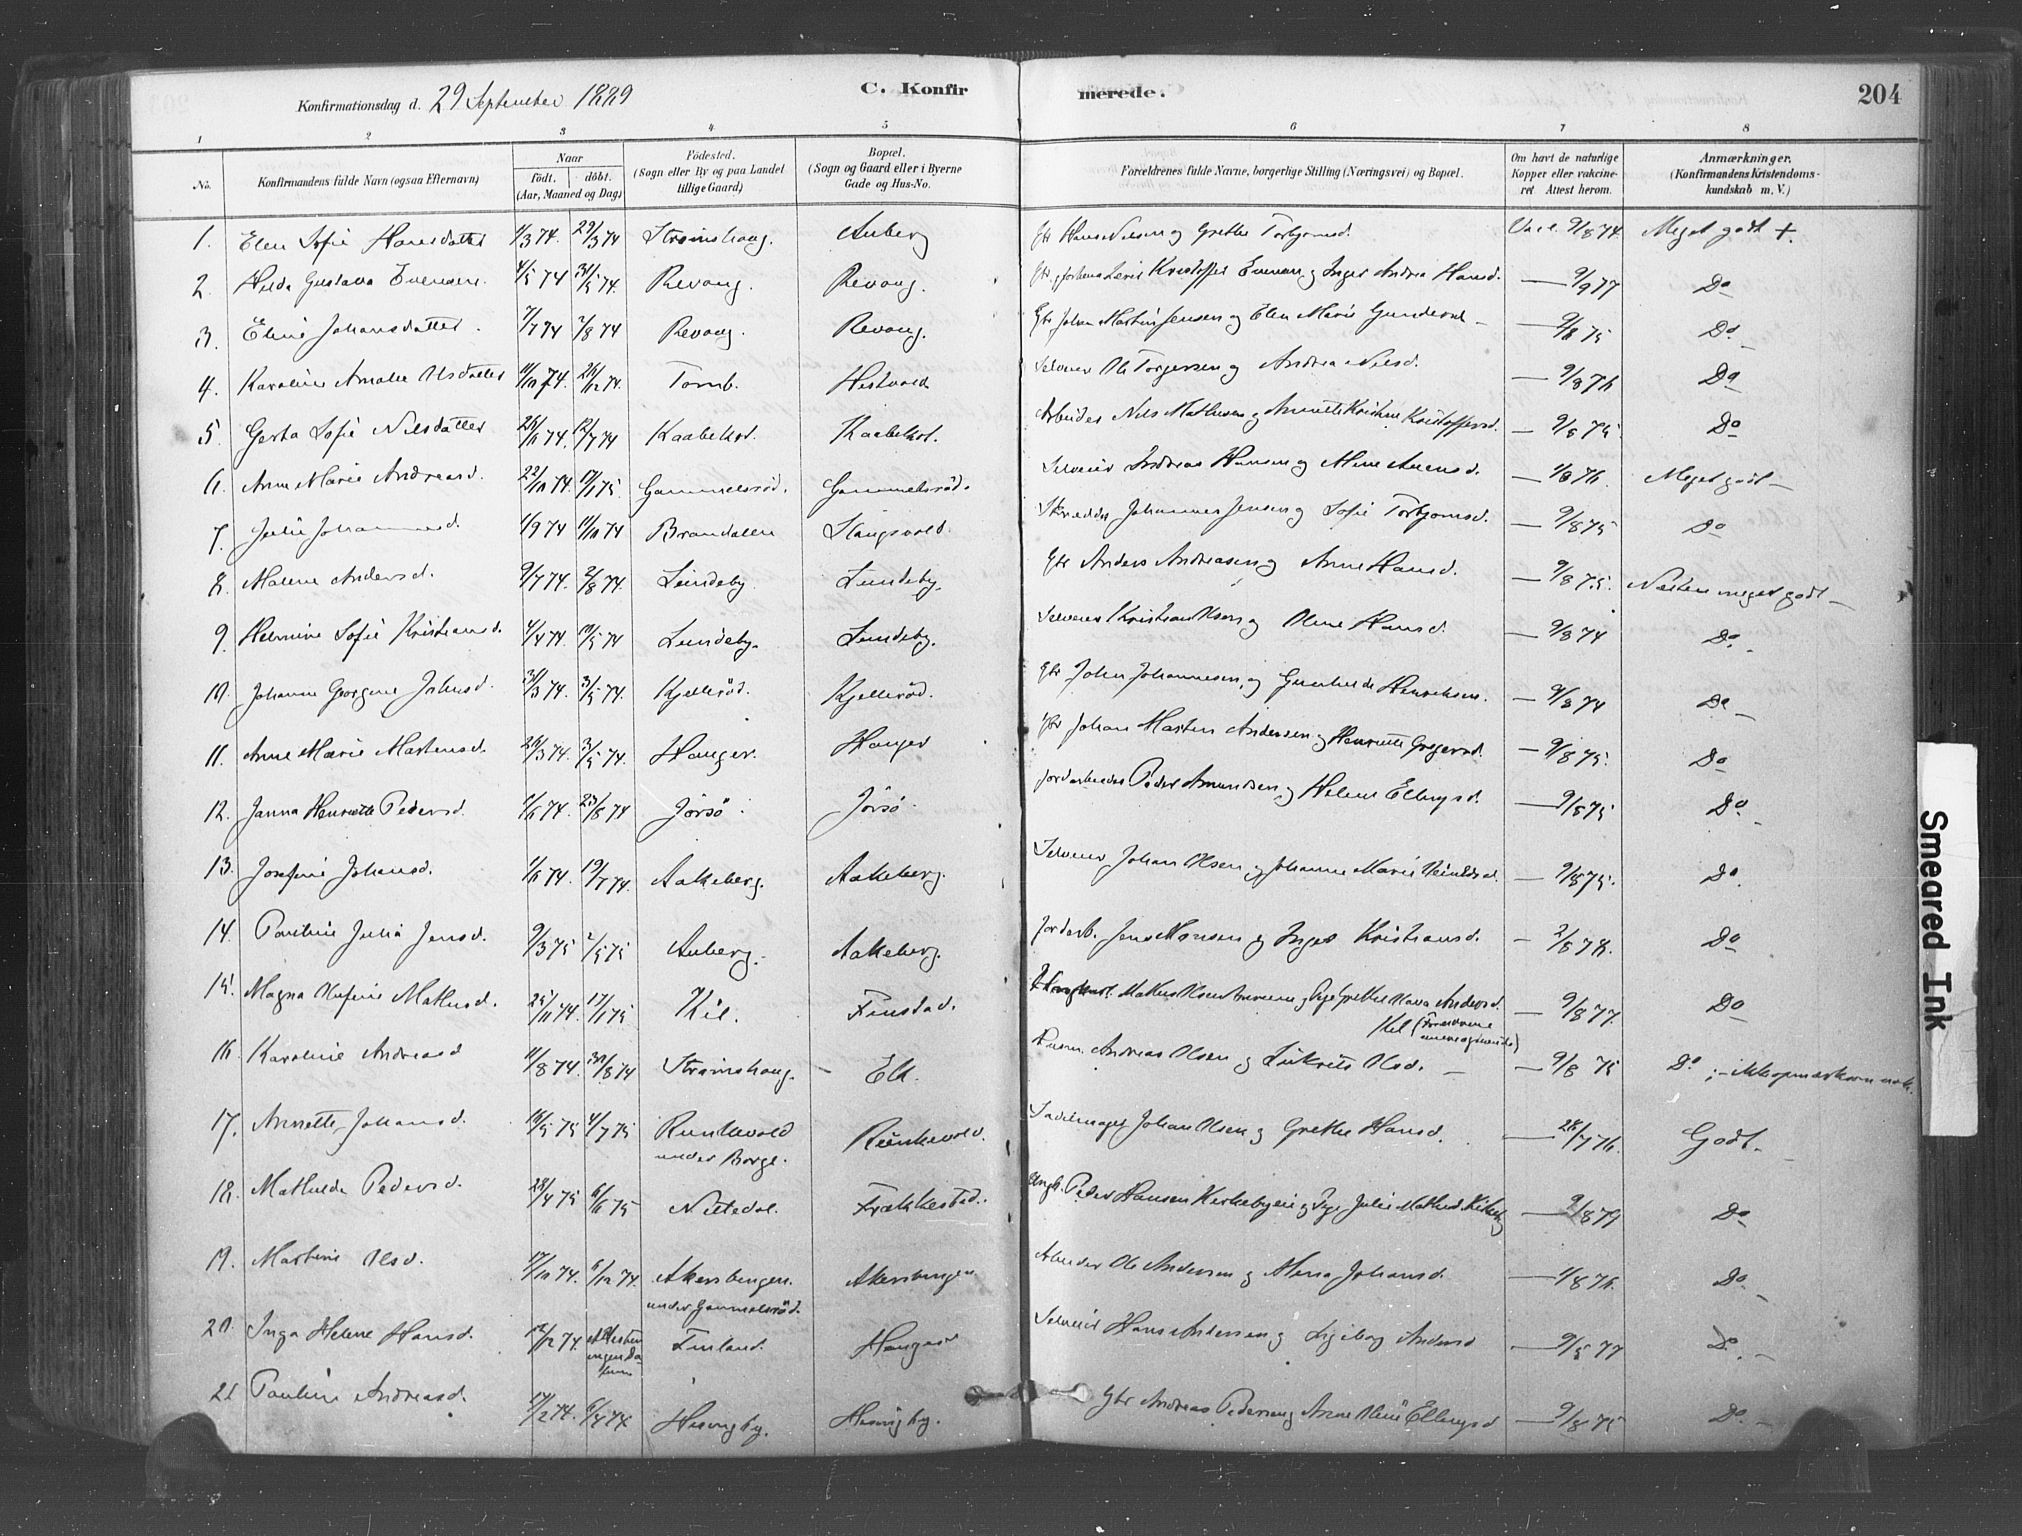 Konfirmationsdag d. 29 September 1889 C. Konfirmerede. 204
1 2 3 4 5 6 7 8
No. Konfirmandens fulde Navn (ogsaa Efternavn) Naar födt. döbt. (Aar, Maaned og Dag) Födested. (Sogn eller By og paa Landet tillige Gaard) Bopæl. (Sogn og Gaard eller i Byerne Gade og Hus-No. Forældrenes fulde Navne, borgerlige Stilling (Næringsvei) og Bopæl. Om havt de naturlige Kopper eller vakcineret Attest herom. Anmærkninger. (Konfirmandens Kristendomskundskab m. V.)
1. Elen Sofie Hansdatter 1/3 74. 29/3 74 Strømshaug. Auberg Gbr Hans Nilsen og Grethe Torbjørnsd. Vacc. 9/8 74. Meget godt +.
2. Hilda Gustava Evensen. 4/5 74 31/5 74. Revoug. Revoug. Kristoffer Evensen og Inger Andrea Hansd. — 9/9 77 Do
3. Eline Johansdatter. 7/7 74 2/8 74 Revoug. Revoug. Gbr Johan Martin Jensen og Elen Marie Gundersd — 9/8 75 Do. —
4. Karoline Amalie Olsdatter 11/10 74. 26/12 74. Tomb. Hestvold Selveier Ole Torgersen og Andrea Nilsd. — 9/8 76 Do
5. Gerta Sofie Nilsdatter 74. 12/7 74 Kaabekol. Kaabekol. Arbeider Nils Mathisen og Annette Kristine Kristoffersd. — 9/8 75. Do
6. Anne Marie Andreasd. 22/10 74. 17/1 75 Gammelsröd. Gammelsröd. Selveier Andreas Hansen og Aline Anensd. — 1/8 76. Meget godt —
7. Julie Johannesd. 1/9 74 11/10 74 Brandalen Slangsvold. Skrædder Johannes Jensen og Sofie Torbjørnsd. — 9/8 75 Do
8. Malene Andersd. 9/7 74. 2/8 74 Lundeby Lundeby. Gbr Anders Andreasen og Anne Hansd. — 9/8 75. Næsten meget godt —
9. Helmine Sofie Kristiansd. 4/4 74 10/5 74 Lundeby. Lundeby. Selveier Kristian Olsen og Oline Hansd. — 9/8 74 Do. —
10. Johanne Georgine Johnsd. 31/3 74. 3/5 74. Kjelleröd. Kjelleröd. Gbr John Johannesen, og Gunhilde Henriksen. — 9/8 74 Do —
11. Anne Marie Martensd. 26/3 74. 3/5 74. Hauger. Hauger Gbr Johan Marten Andersen og Henriette Gregersd. — 9/8 75. Do
12. Janna Henriette Pedersd. 1/6 74. 23/8 74 Jörsö. Jörsö. Jordarbeider Peder Amundsen og Helene Ellingsd. — 9/8 75 Do —
13. Josefine Johansd. 1/6 74 19/7 74. Aakeberg. Aakeberg. Selveier Johan Olsen og Johanne Marie — 9/8 75. Do.
14. Pauline Julia Jensd. 9/3 75 2/5 75 Auberg. Aakeberg. Jordarb. Jens Hansen og Inger Kristiansd. — 2/8 78. Do
15. Magna Olufine Mathisd. 25/11 74. 17/1 75 Kil. Finstad. Mathias Olsen og Pige Grethe Andersd. Kil — 9/8 77. Do
16. Karoline Andreasd 11/8 74. 30/8 74 Strømshaug. — Elk. Husm. Andreas Olsen og Lukrits Olsd. — — 9/8 75 Do
17. Annette Johansd. 16/5 75 4/7 75 Runkevold under Borge. Runkevold. Sadelmager Johan Olsen og Grethe Hansd. — 28/7 76. Godt. —
18. Mathilde Pedersd. 28/4 75 6/6 75 Nittedal. Frækkestad. Ungk. Peder Hansen Kirkebyeie og Pige Julie Mathisd. Kirkeby — 9/8 79 Do
19. Martine Olsd. 17/10 74. 6/12 74. Akersbergen. under Gammelsröd. Akersbergen Arbeider Ole Andersen og Maria Johansd. — 1/8 76. Do. —
20. Inga Helene Hansd. 12/12 74. Attesten ingen Datum Finland. Hauger Selveier Hans Andersen og Ingeborg Andersd — 9/5 77 Do. —
21 Pauline Andreasd. 17/2 74. 6/4 74 Hesnigby. Hesnigby. Gbr Andreas Pedersen og Anne Oline Ellingsd — 9/8 75 Do. —
Smeared Ink